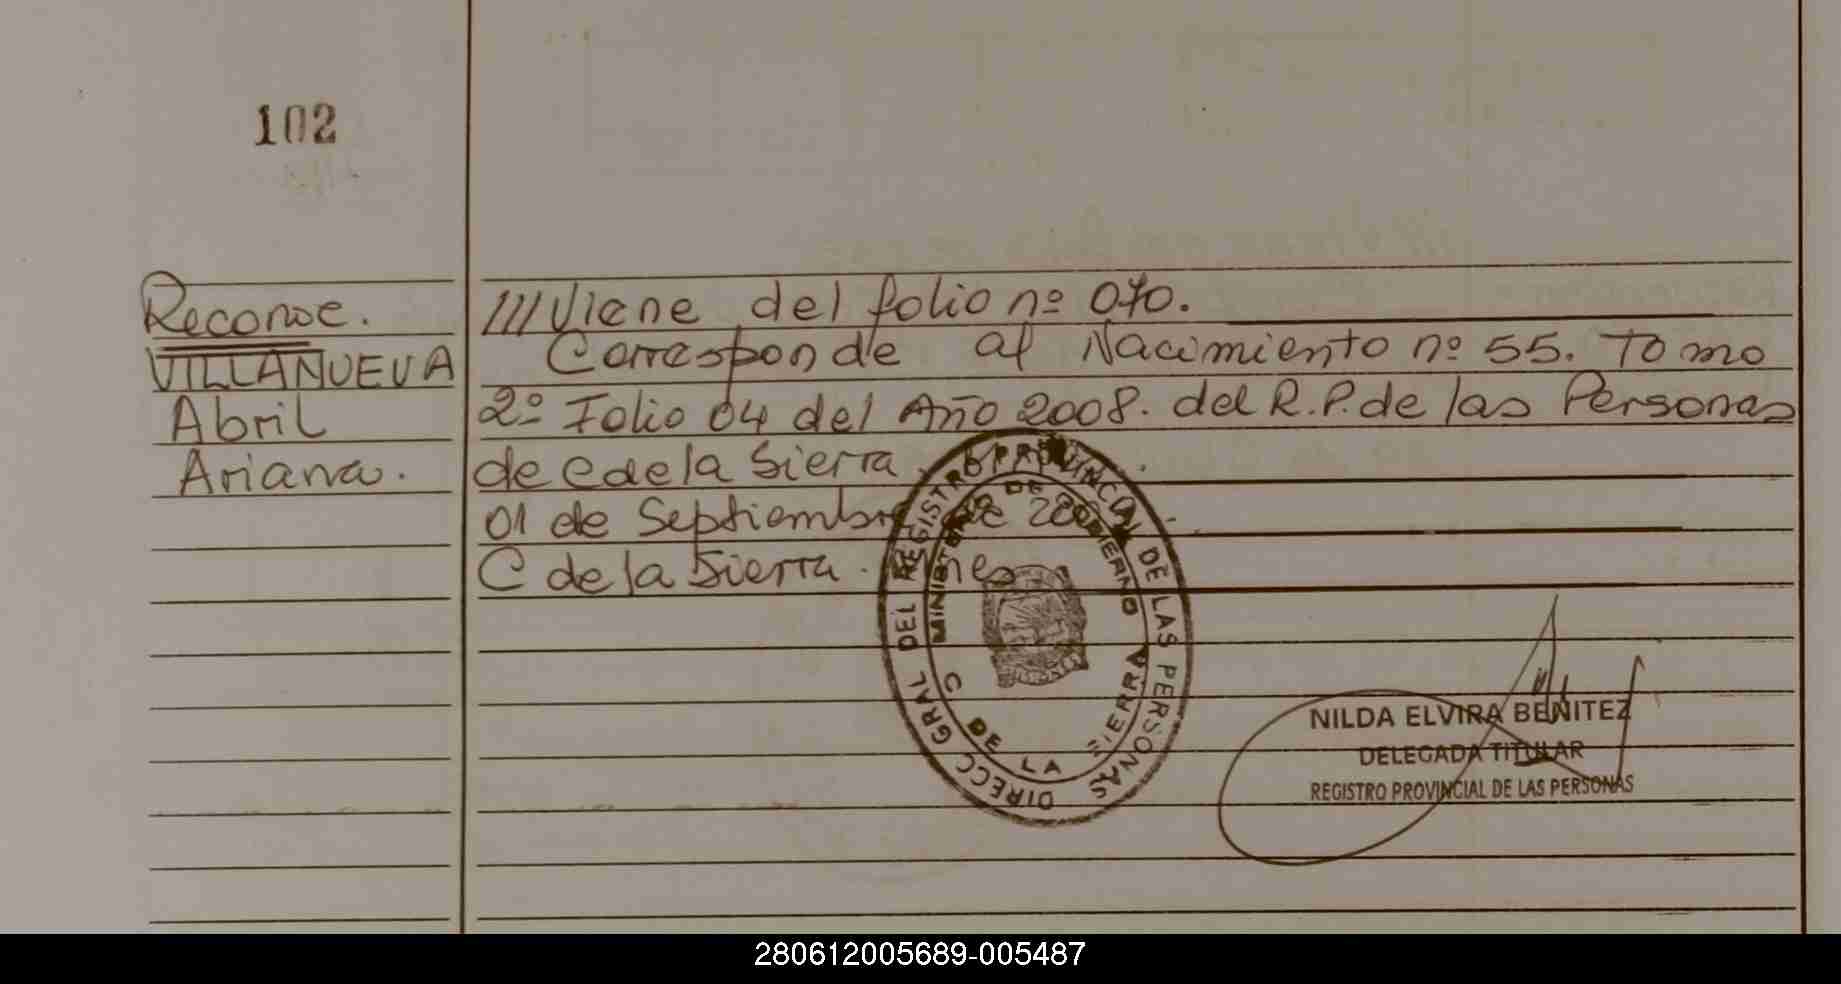 102
Reconoc.
VILLANUEVA
Abril
Ariana.
///Viene del folio nº 070.
Corresponde al Nacimiento nº 55. Tomo
2º Folio 04 del Año 2008. del R.P. de las Personas
de C de la Sierra.
01 de Septiembre de
C de la Sierra. Mnes
DIRECC GRAL DEL REGISTRO PROVINCIAL DE LAS PERSONAS
MINISTERIO DE GOBIERNO
C DE LA SIERRA
NILDA ELVIRA BENITEZ
DELEGADA TITULAR
REGISTRO PROVINCIAL DE LAS PERSONAS
280612005689-005487